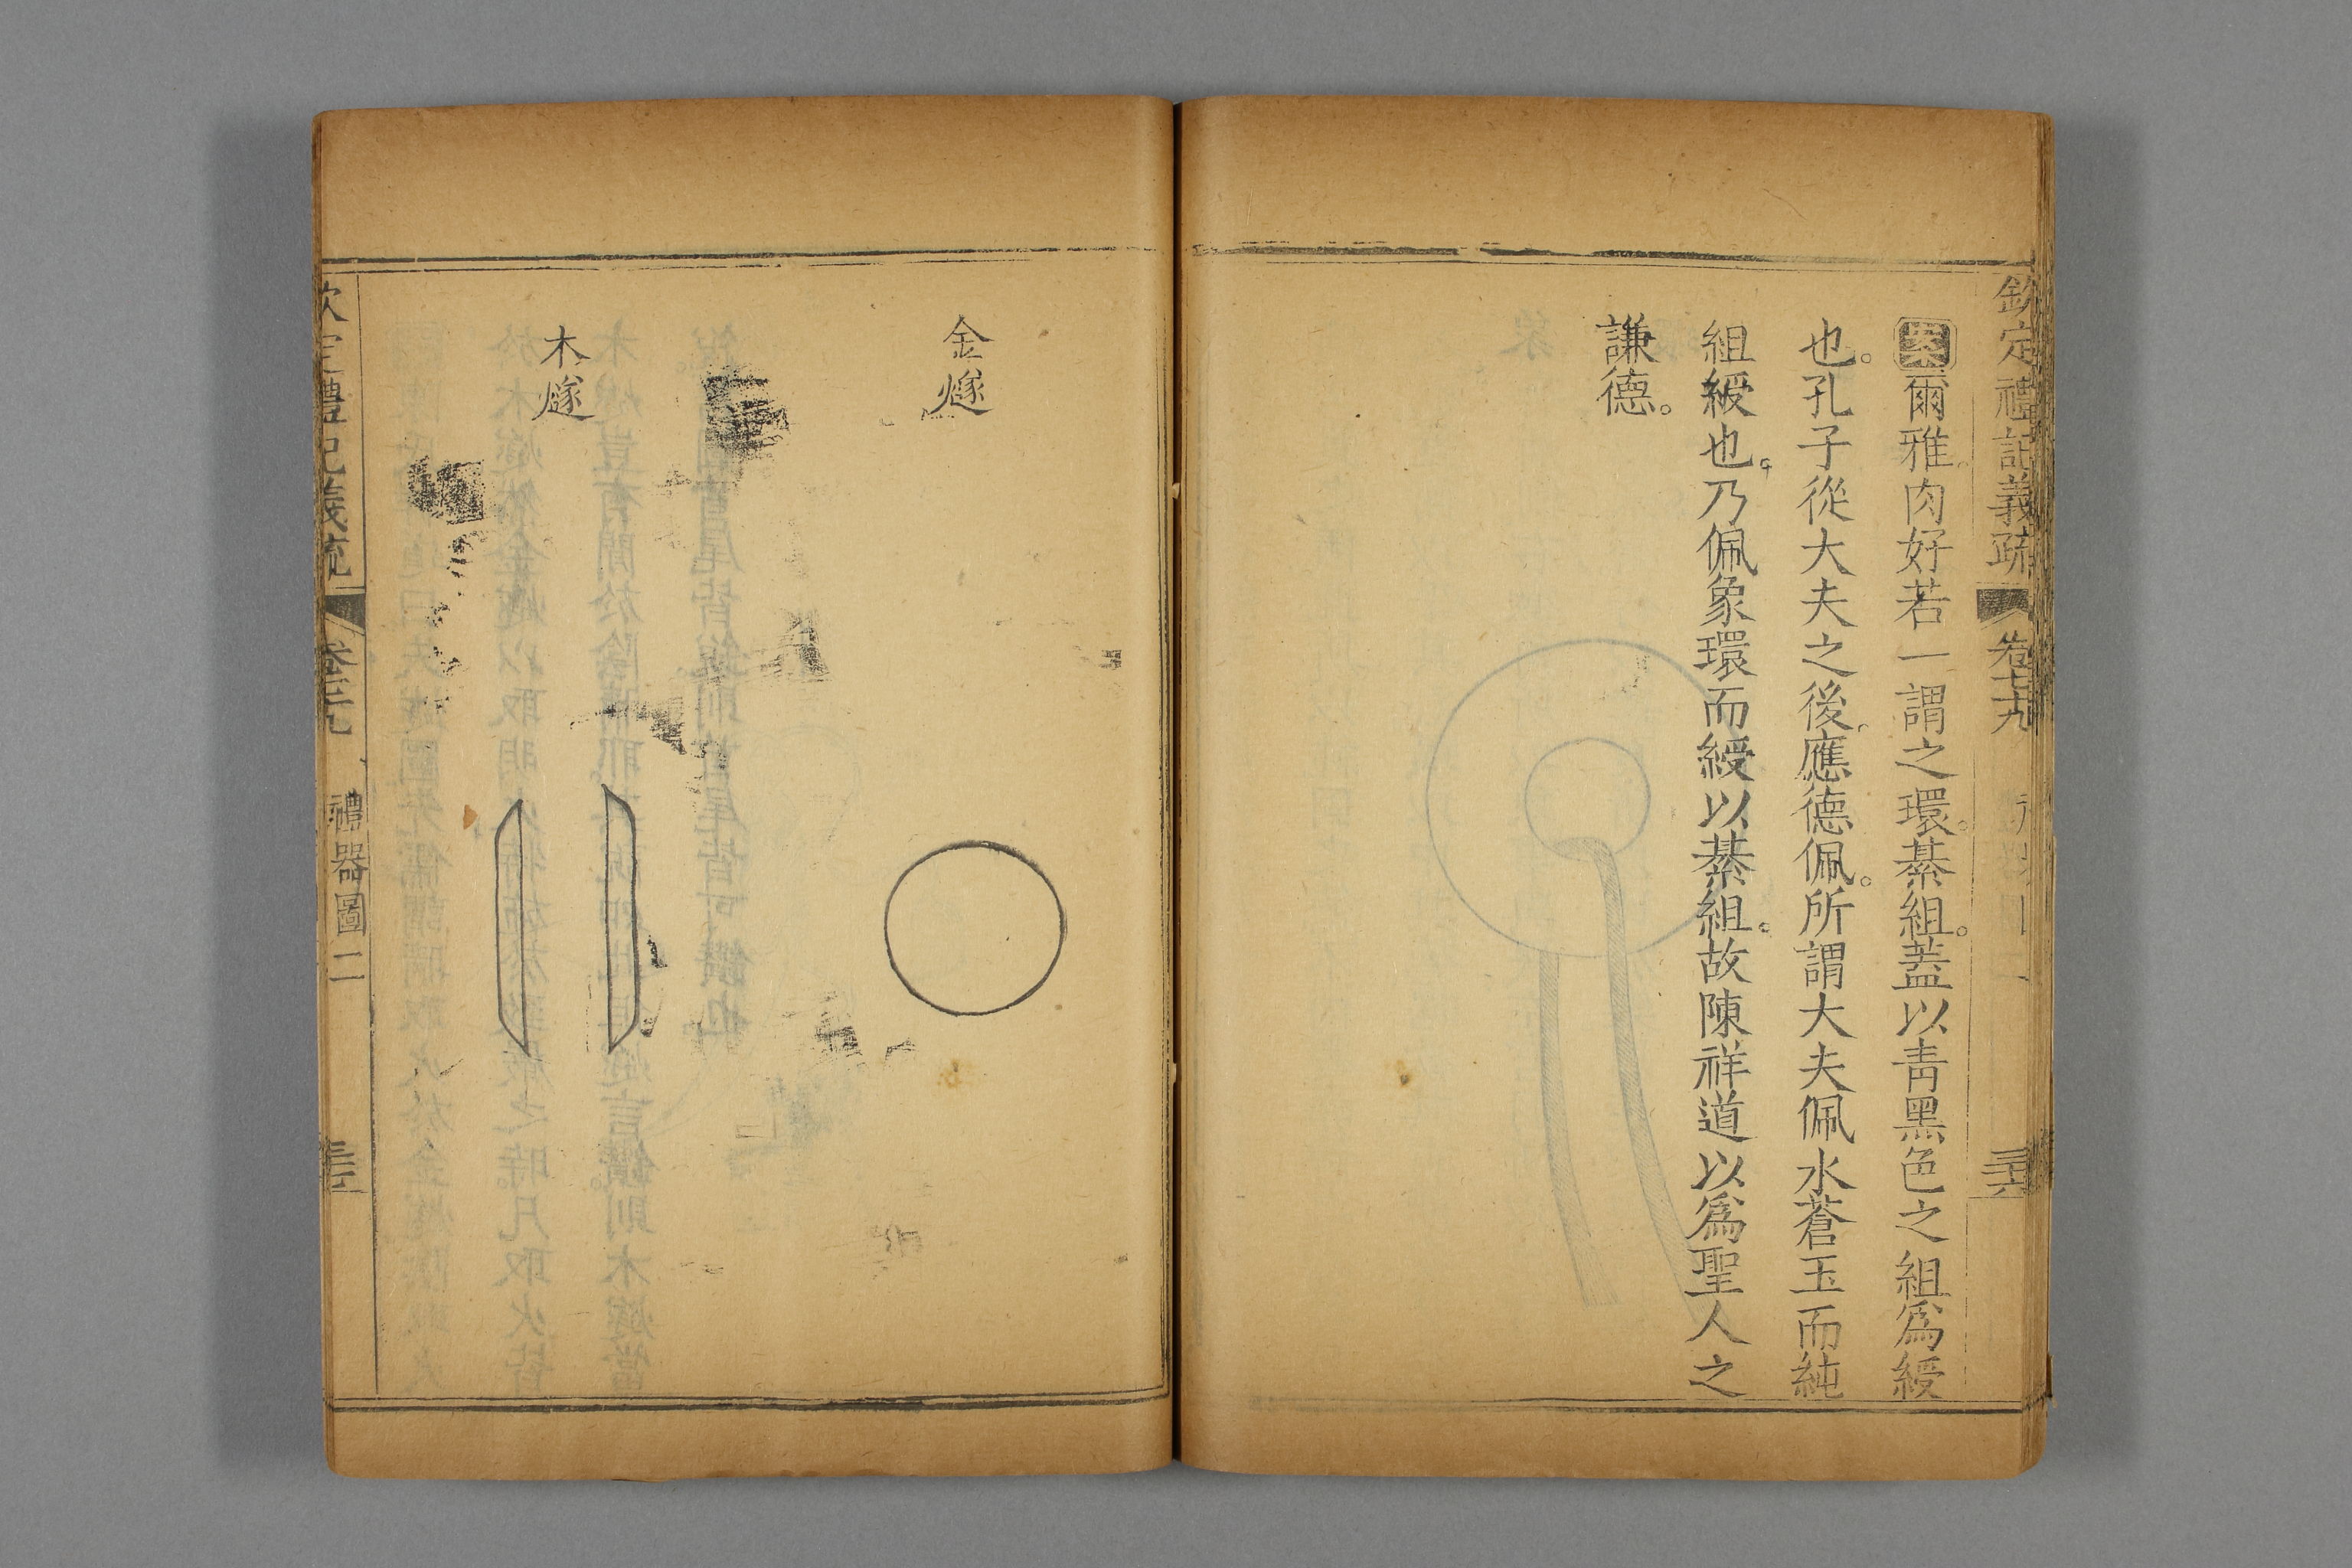 欽定禮記義疏 卷七十九
案爾雅肉好若一謂之環。綦組。蓋以靑黑色之組爲綬
也。孔子從大夫之後。應德佩。所謂大夫佩水蒼玉而純
組綬也。乃佩象環而綬以綦組。故陳祥道以爲聖人之
謙德。
金燧
木燧
欽定禮記義疏 禮器圖二